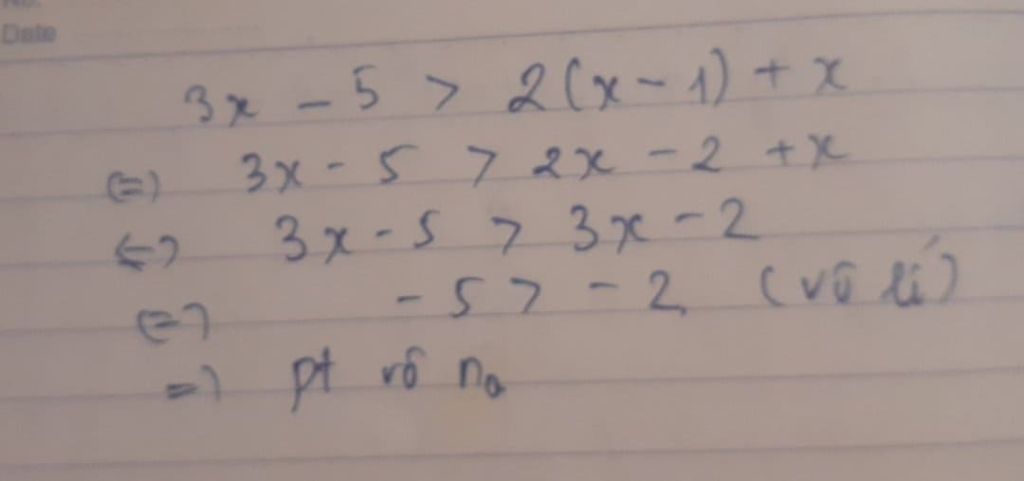 Date
3x - 5 > 2(x - 1) + x
(=) 3x - 5 > 2x - 2 + x
<=> 3x - 5 > 3x - 2
(=> - 5 > - 2 (vô lí)
=> pt vô no